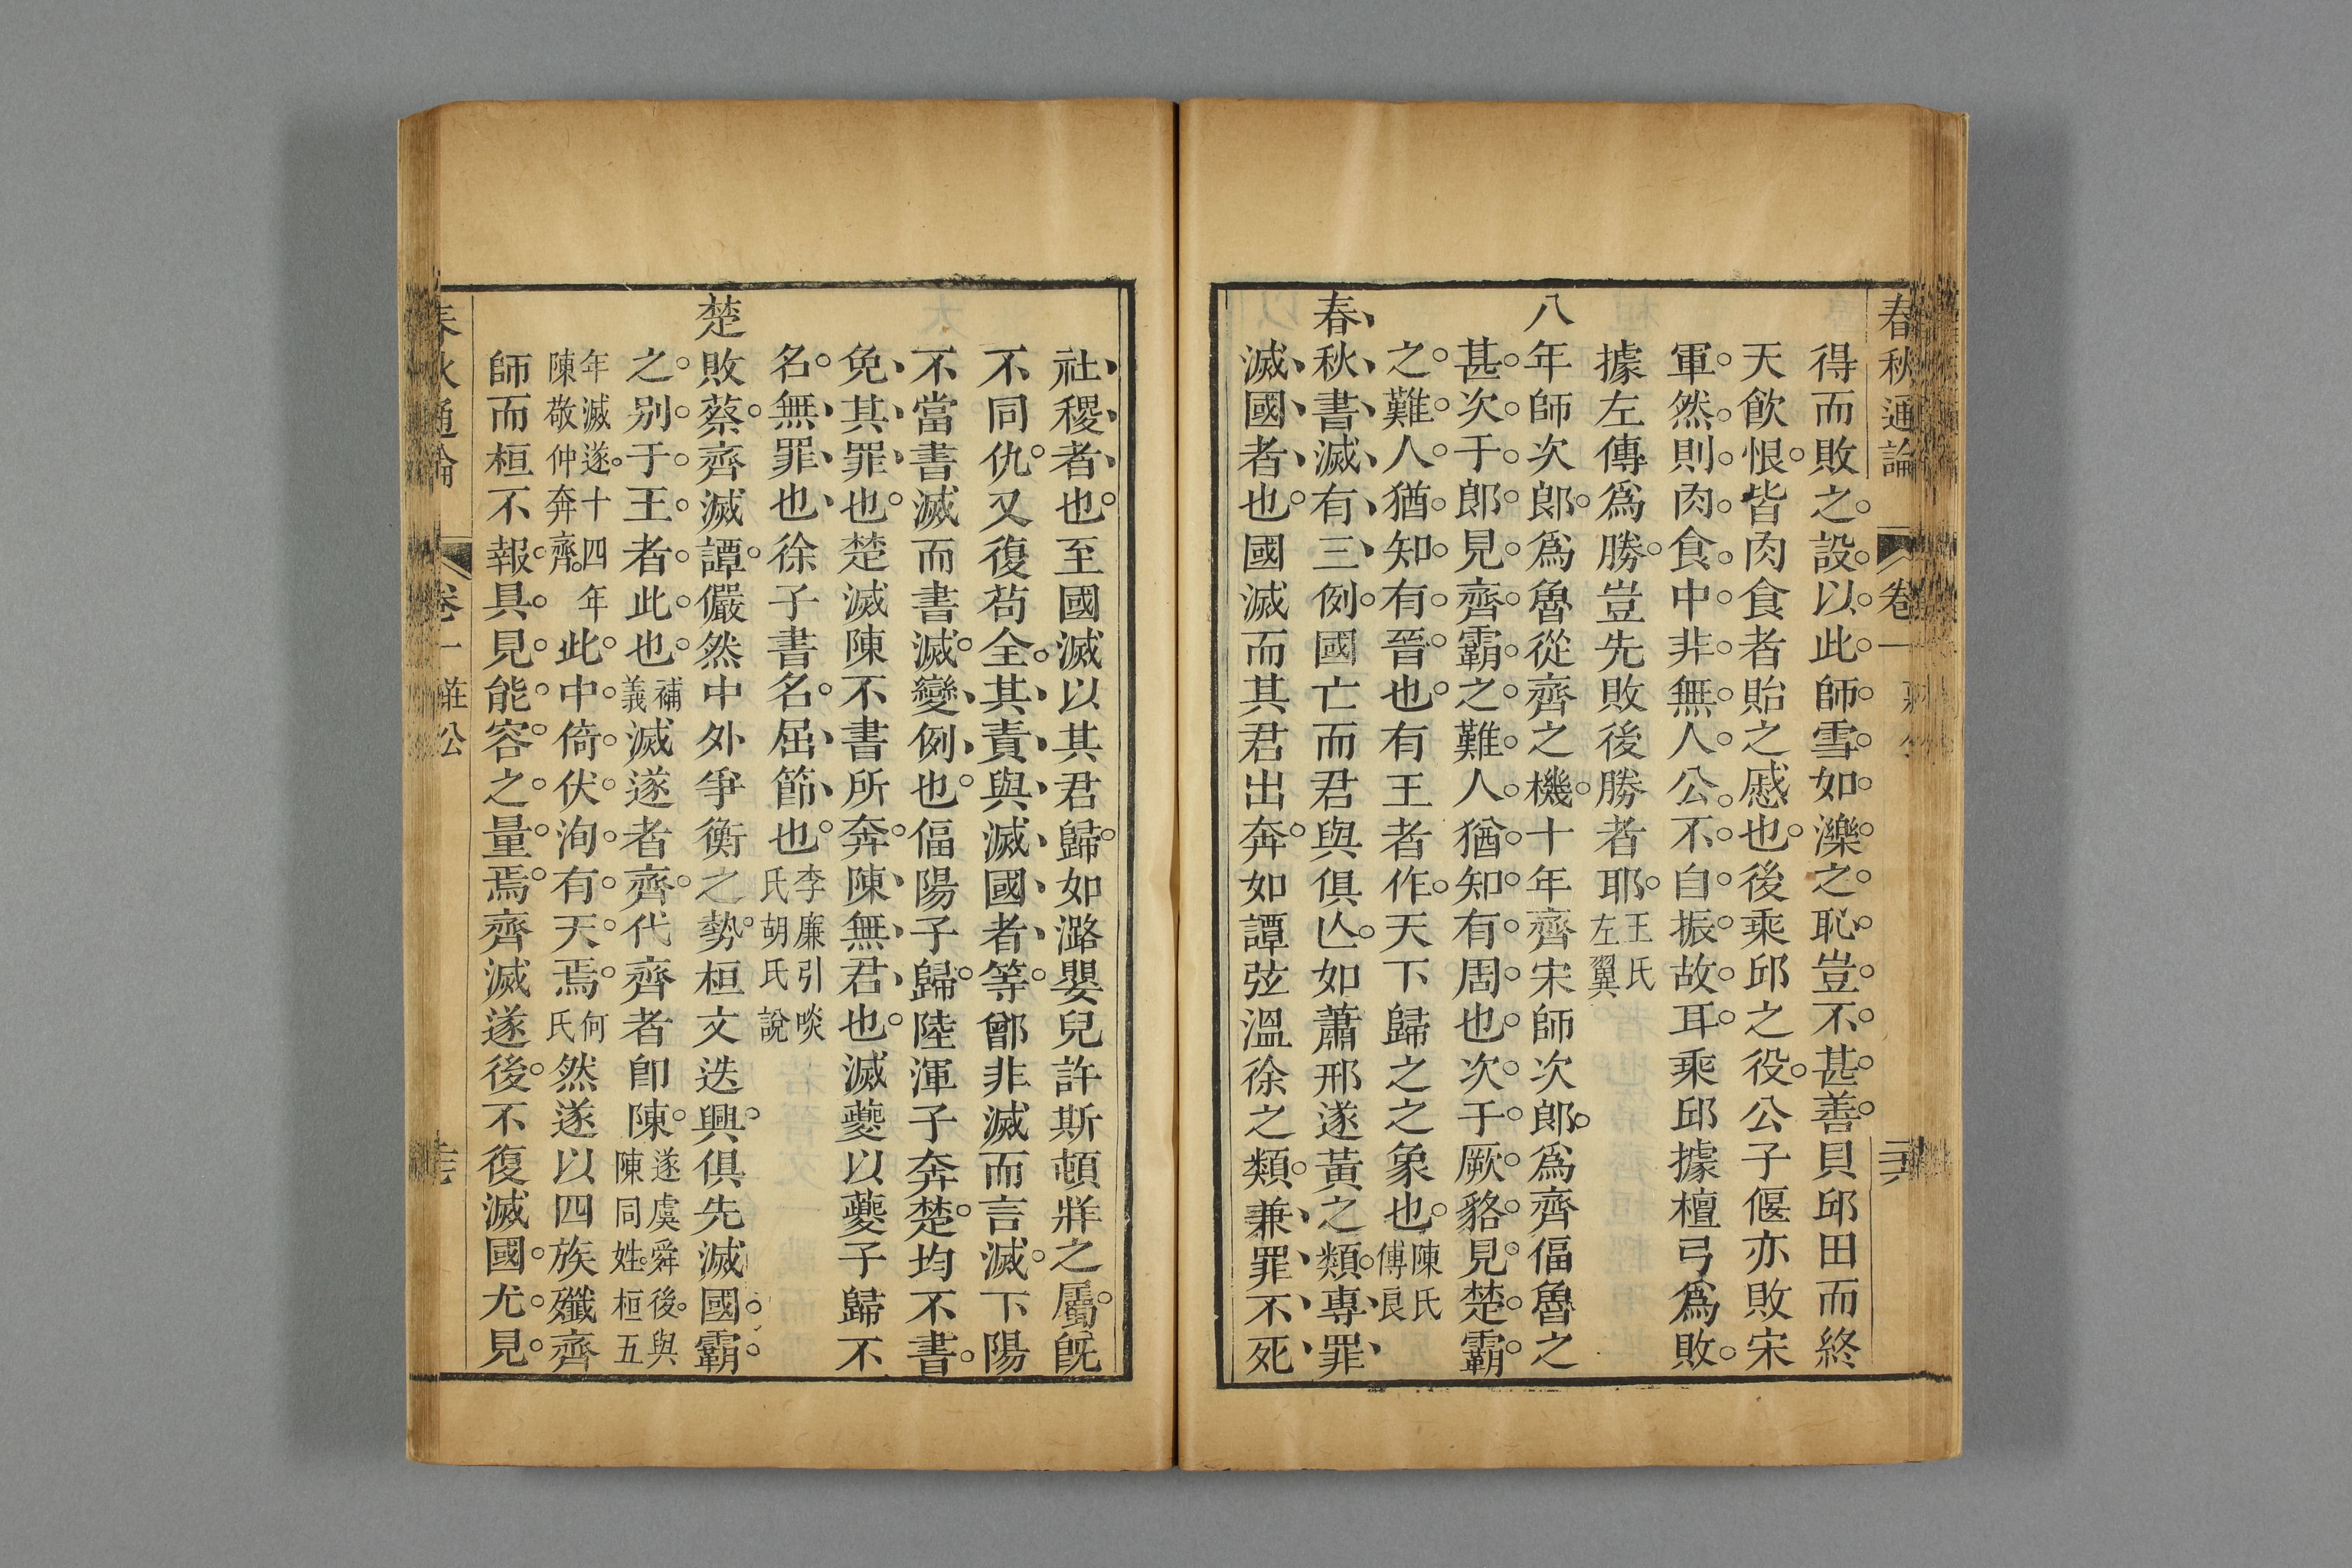 春秋通論 卷一
得而敗之設以此師雪如濼之恥豈不甚善貝邱田而終
天飲恨皆肉食者貽之慼也後乘邱之役公子偃亦敗宋
軍然則肉食中非無人公不自振故耳乘邱據檀弓爲敗
據左傳爲勝豈先敗後勝者耶王氏左翼
八年師次郎爲魯從齊之機十年齊宋師次郎爲齊偪魯之
甚次于郎見齊霸之難人猶知有周也次于厥貉見楚霸
之難人猶知有晉也有王者作天下歸之之象也陳氏傅良
春秋書滅有三例國亡而君與俱亾如蕭邢遂黃之類專罪
滅國者也國滅而其君出奔如譚弦溫徐之類兼罪不死
社稷者也至國滅以其君歸如潞嬰兒許斯頓牂之屬旣
不同仇又復苟全其責與滅國者等鄫非滅而言滅下陽
不當書滅而書滅變例也偪陽子歸陸渾子奔楚均不書
免其罪也楚滅陳不書所奔陳無君也滅夔以夔子歸不
名無罪也徐子書名屈節也李廉引啖氏胡氏說
楚敗蔡齊滅譚儼然中外爭衡之勢桓文迭興俱先滅國霸
之别于王者此也補義滅遂者齊代齊者卽陳遂虞舜後與陳同姓桓五
年滅遂十四年陳敬仲奔齊此中倚伏洵有天焉何氏然遂以四族殲齊
師而桓不報具見能容之量焉齊滅遂後不復滅國尤見
春秋通論 卷一 莊公